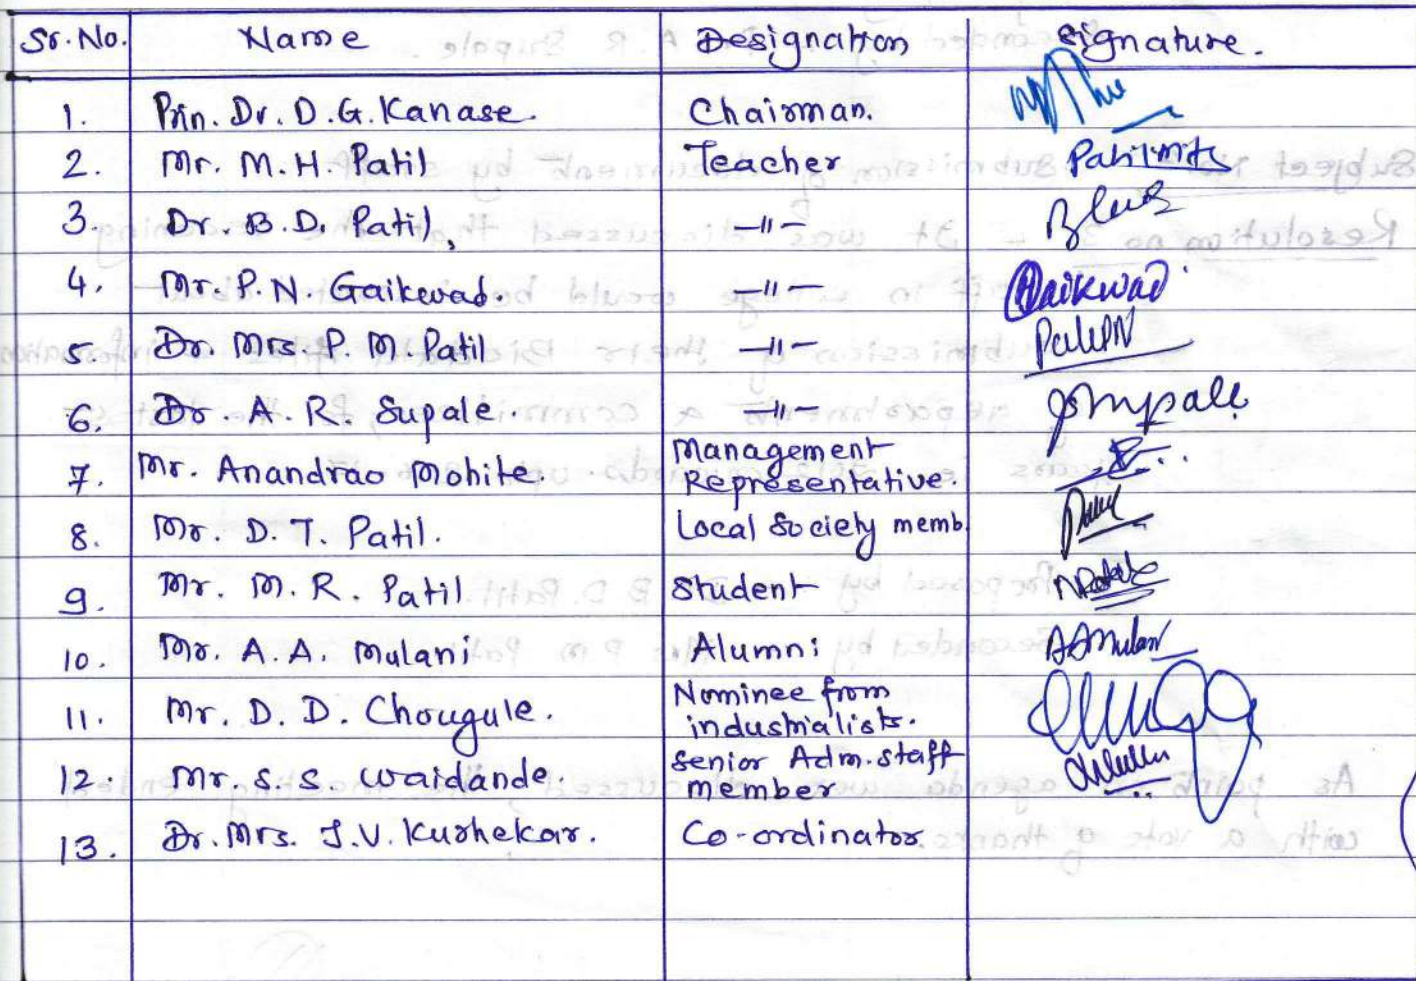 Sr. No. Name Designation Signature.
1. Prin. Dr. D. G. Kanase. Chairman.
2. Mr. M. H. Patil Teacher
3. Dr. B. D. Patil, -"-
4. Mr. P. N. Gaikwad. -"- Gaikwad
5. Dr. Mrs. P. M. Patil -"-
6. Dr. A. R. Supale. -"-
7. Mr. Anandrao Mohite. Management
Representative.
8. Mr. D. T. Patil. Local Society memb.
9. Mr. M. R. Patil. Student
10. Mr. A. A. Mulani Alumni AAMulani
11. Mr. D. D. Chougule. Nominee from
industrialists.
12. Mr. S. S. Waidande. Senior Adm. staff
member
13. Dr. Mrs. J. V. Kurhekar. Co-ordinator.